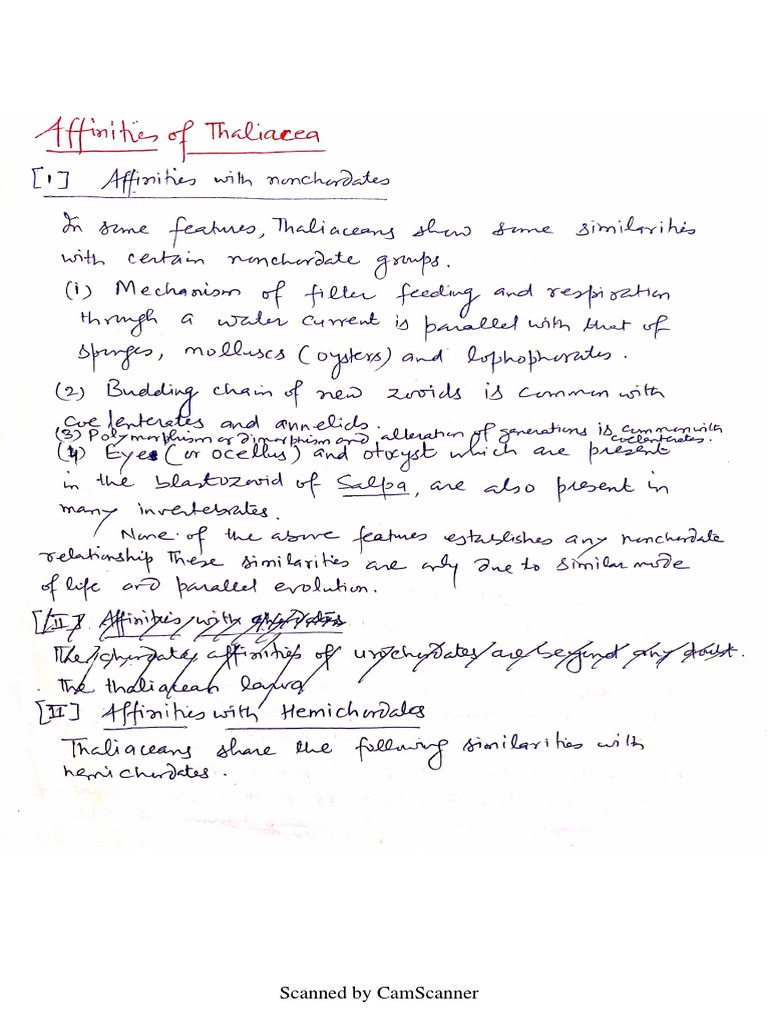 Affinities of Thaliacea
[1] Affinities with nonchordates
In some features, Thaliaceans show some similarities
with certain nonchordate groups.
(1) Mechanism of filter feeding and respiration
through a water current is parallel with that of
sponges, molluscs (oysters) and lophophorates.
(2) Budding chain of new zooids is common with
coelenterates and annelids.
(3) Polymorphism or dimorphism and alteration of generations is common with
coelenterates.
(4) Eyes (or ocellus) and otocyst which are present
in the blastozoid of Salpa, are also present in
many invertebrates.
None of the above features establishes any nonchordate
relationship These similarities are only due to similar mode
of life and parallel evolution.
[II] Affinities with chordates
The chordate affinities of urochordates are beyond any doubt.
The thaliacean larva
[II] Affinities with Hemichordates
Thaliaceans share the following similarities with
hemichordates.
Scanned by CamScanner